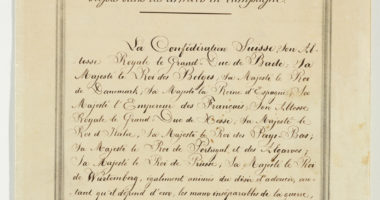 La Confédération Suisse, Son Al-
tesse Royale le Grand-Duc de Bade, Sa
Majesté le Roi des Belges, Sa Majesté le Roi
de Danemark, Sa Majesté la Reine d'Espagne, Sa
Majesté l'Empereur des Français, Son Altesse
Royale le Grand Duc de Hesse, Sa Majesté le
Roi d'Italie, Sa Majesté le Roi des Pays-Bas;
Sa Majesté le Roi de Portugal et des Algarves;
Sa Majesté le Roi de Prusse, Sa Majesté le Roi
de Würtemberg, également animés du désir d'adoucir, au-
tant qu'il dépend d'eux, les maux inséparables de la guerre,